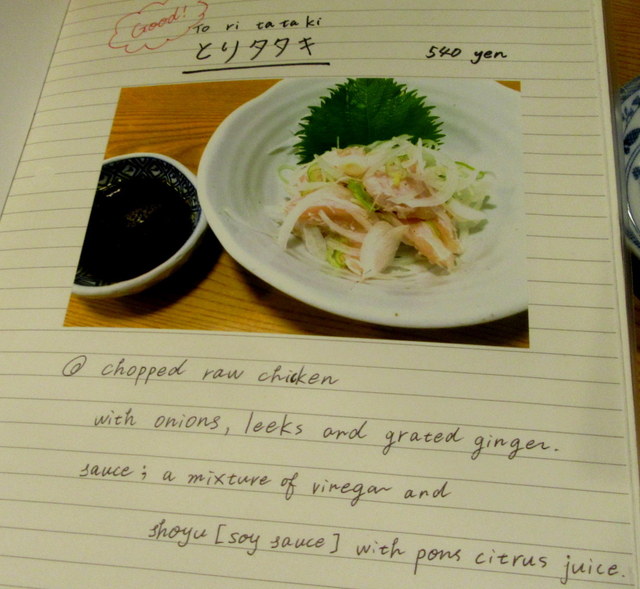 Good!
To ri ta ta ki
とりタタキ 540 yen
@ chopped raw chicken
with onions, leeks and grated ginger.
sauce ; a mixture of vinegar and
shoyu [soy sauce] with pons citrus juice.